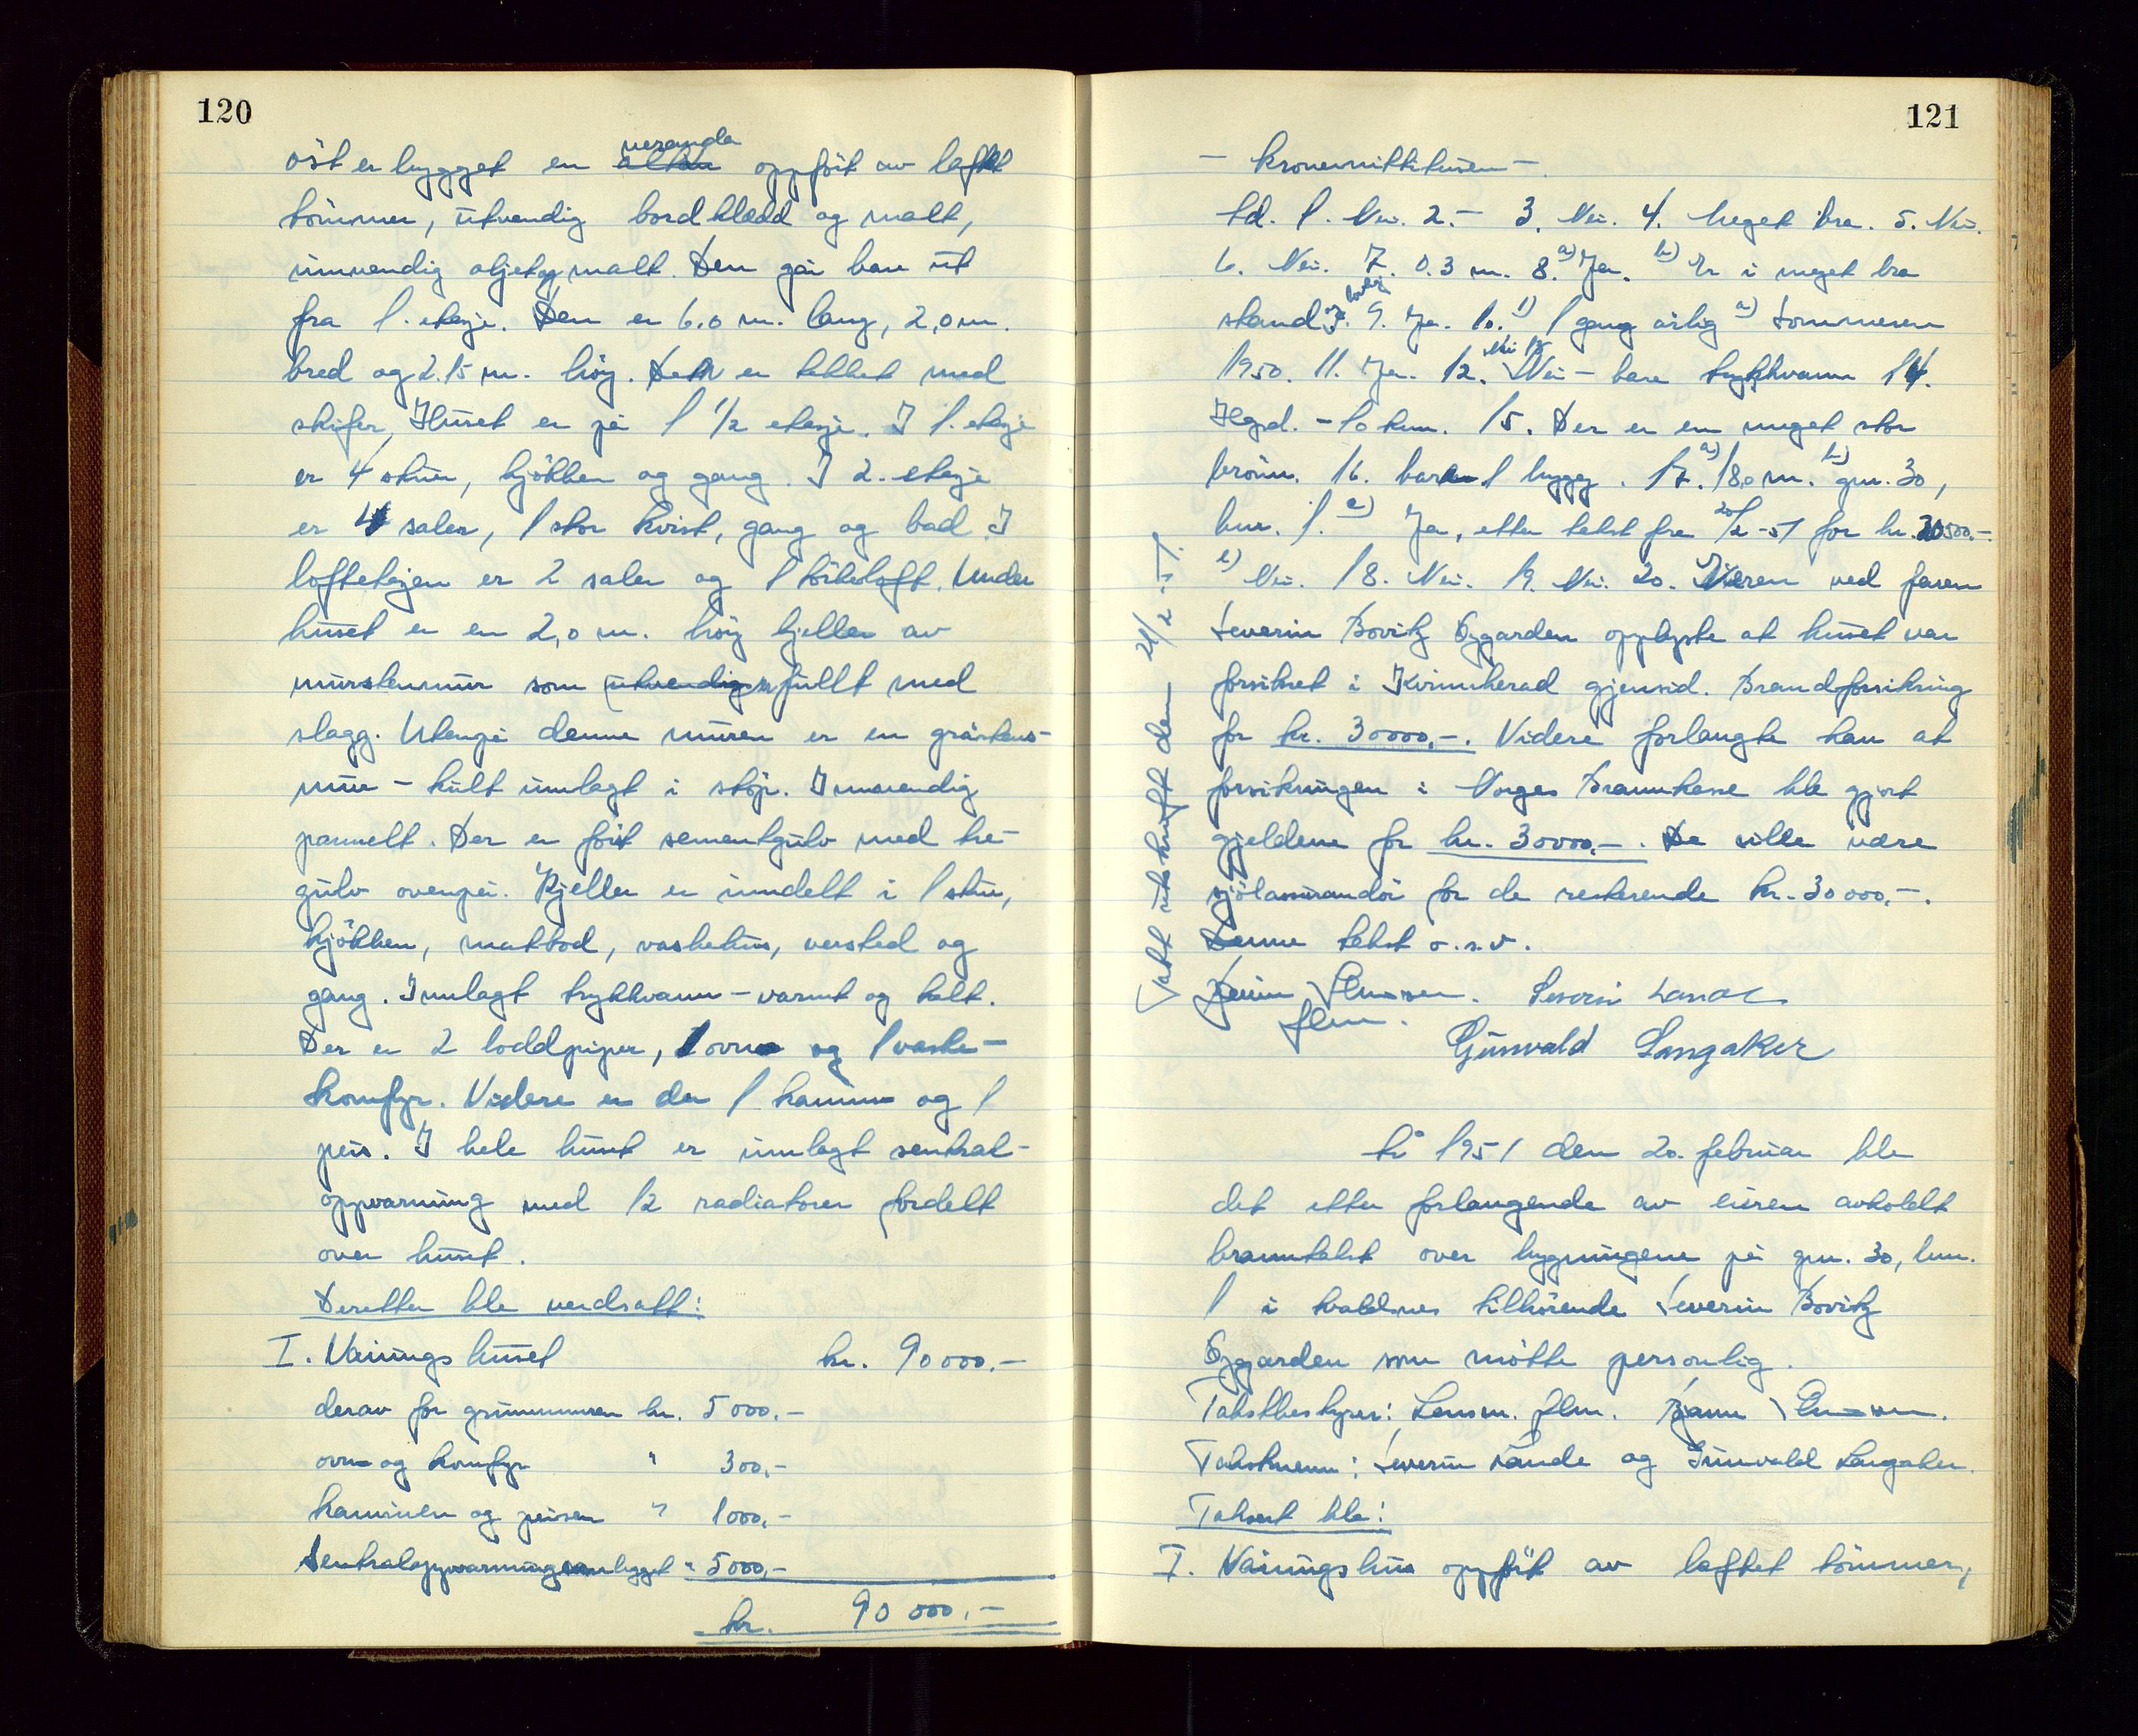 120
veranda
öst er bygget en altan oppfört av laftet
tömmer, utvendig bordkledd og malt,
innvendig oljet og malt. Den går bare ut
fra 1. etasje. Den er 6.0 m. lang, 2,0 m.
bred og 2.15 m. höy. Den er tekket med
skifer, Huset er på 1 1/2 etasje. I 1. etasje
er 4 stuer, kjökken og gang. I 2. etasje
er 4 saler, 1 stor kvist, gang og bad. I
loftetasjen er 2 saler og 1 törkeloft. Under
huset er en 2,0 m. höy kjeller av
murstenmur som utvendig er fullt med
slagg. Utenpå denne muren er en gråstens-
mur - kult innlagt i stöp. Innvendig
pannelt. Der er fört sementgulv med tre-
gulv ovenpå. Kjeller er inndelt i 1 stue,
kjökken, matbod, vaskehus, versted og
gang. Innlagt trykkvann - varmt og kalt.
Der er 2 loddpiper, 1 ovn og 1 vaske-
komfyr. Videre er der 1 kamin og 1
peis. I hele huset er innlagt sentral-
oppvarming med 12 radiatorer fordelt
over huset.
Deretter ble verdsatt:
I. Våningshuset kr. 90 000.-
derav for grunnmuren kr. 5 000.-
ovn og komfyr " 300,-
kaminen og peisen " 1000,-
Sentraloppvarmingsanlegget " 5000,-
kr. 90 000,-
121
- kronemittitusen -.
td. 1. Nei. 2. - 3. Nei. 4. Meget bra. 5. Nei.
6. Nei. 7. 0.3 m. 8. a) Ja. b) Er i meget bra
stand og lovlig. 9. Ja. 10. 1) 1 gang årlig a) Sommeren
1950. 11. Ja. 12. Nei 13. Nei - bare trykkvann 14.
Hgsd. - 10 km. 15. Der er en meget stor
brönn. 16. bare 1 bygg. 17. a) 18,0 m. b) gnr. 30,
bnr. 1. c) Ja, etter takst fra 20/2 -51 for kr. 20500.-.
e) Nei. 18. Nei. 19. Nei. 20. Eieren ved faren
Severin Bovitz Eygarden opplyste at huset var
forsikret i Kvinnherad gjensid. Brandforsikring
for kr. 30000,-. Videre forlangte han at
forsikringen i Norges Brannkasse ble gjort
gjeldene for kr. 30000,-. De ville være
sjölassurandör for de resterende kr. 30 000,-.
Denne takst o.s.v.
Severin
flm. Gunvald Langaker
Takst utskrift den 21/2 -51.
År 1951 den 20. februar ble
det etter forlangende av eieren avholdt
branntakst over bygningene på gnr. 30, bnr.
1 i tilhörende Severin Bovitz
Eygarden som mötte personlig.
Takstbestyrer: Lensm. flm. Bjarne
Takstmenn: Severin Sande og Gunvald Langaker.
Taksert ble:
I. Våningshus oppfört av laftet tömmer,